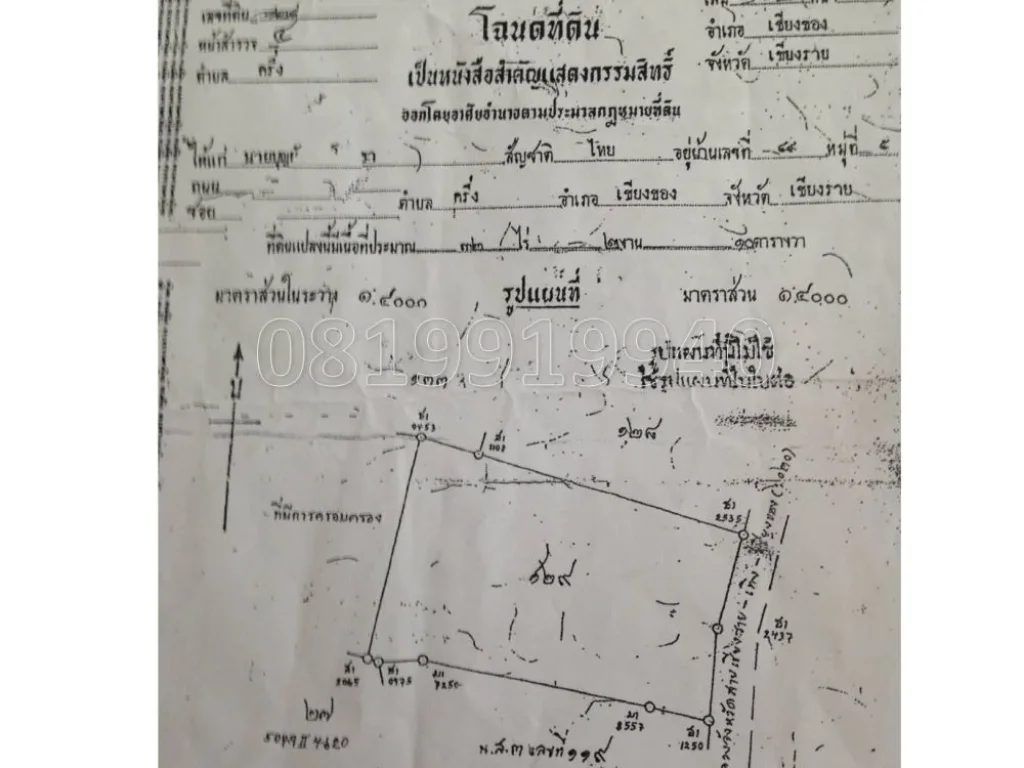 เลขที่ดิน
โฉนดที่ดิน
อำเภอ เชียงของ
หน้าสำรวจ ๕
ตำบล ครึ่ง
เป็นหนังสือสำคัญแสดงกรรมสิทธิ์
จังหวัด เชียงราย
ออกโดยอาศัยอำนาจตามประมวลกฎหมายที่ดิน
ให้แก่ นายบุญ สัญชาติ ไทย อยู่บ้านเลขที่ ๔๔ หมู่ที่ ๕
ถนน
ซอย ตำบล ครึ่ง อำเภอ เชียงของ จังหวัด เชียงราย
ที่ดินแปลงนี้มีเนื้อที่ประมาณ ๓๒ ไร่ ๒ งาน ๑๐ ตารางวา
มาตราส่วนในระวาง ๑:๔๐๐๐ รูปแผนที่ มาตราส่วน ๑:๔๐๐๐
0819919949
รูปแผนที่นี้ไม่ใช้
ใช้รูปแผนที่ในใบต่อ
น
๑๓๓
ช1
0453
ช1
๑๒๘
ที่มีการครอบครอง
ช1
2535
(1020)
ช1
2437
ช1
2065
ช1
0975
7250
2557
ช1
1250
๒๗
4820
น.ส.๓ เลขที่ ๑๑๙